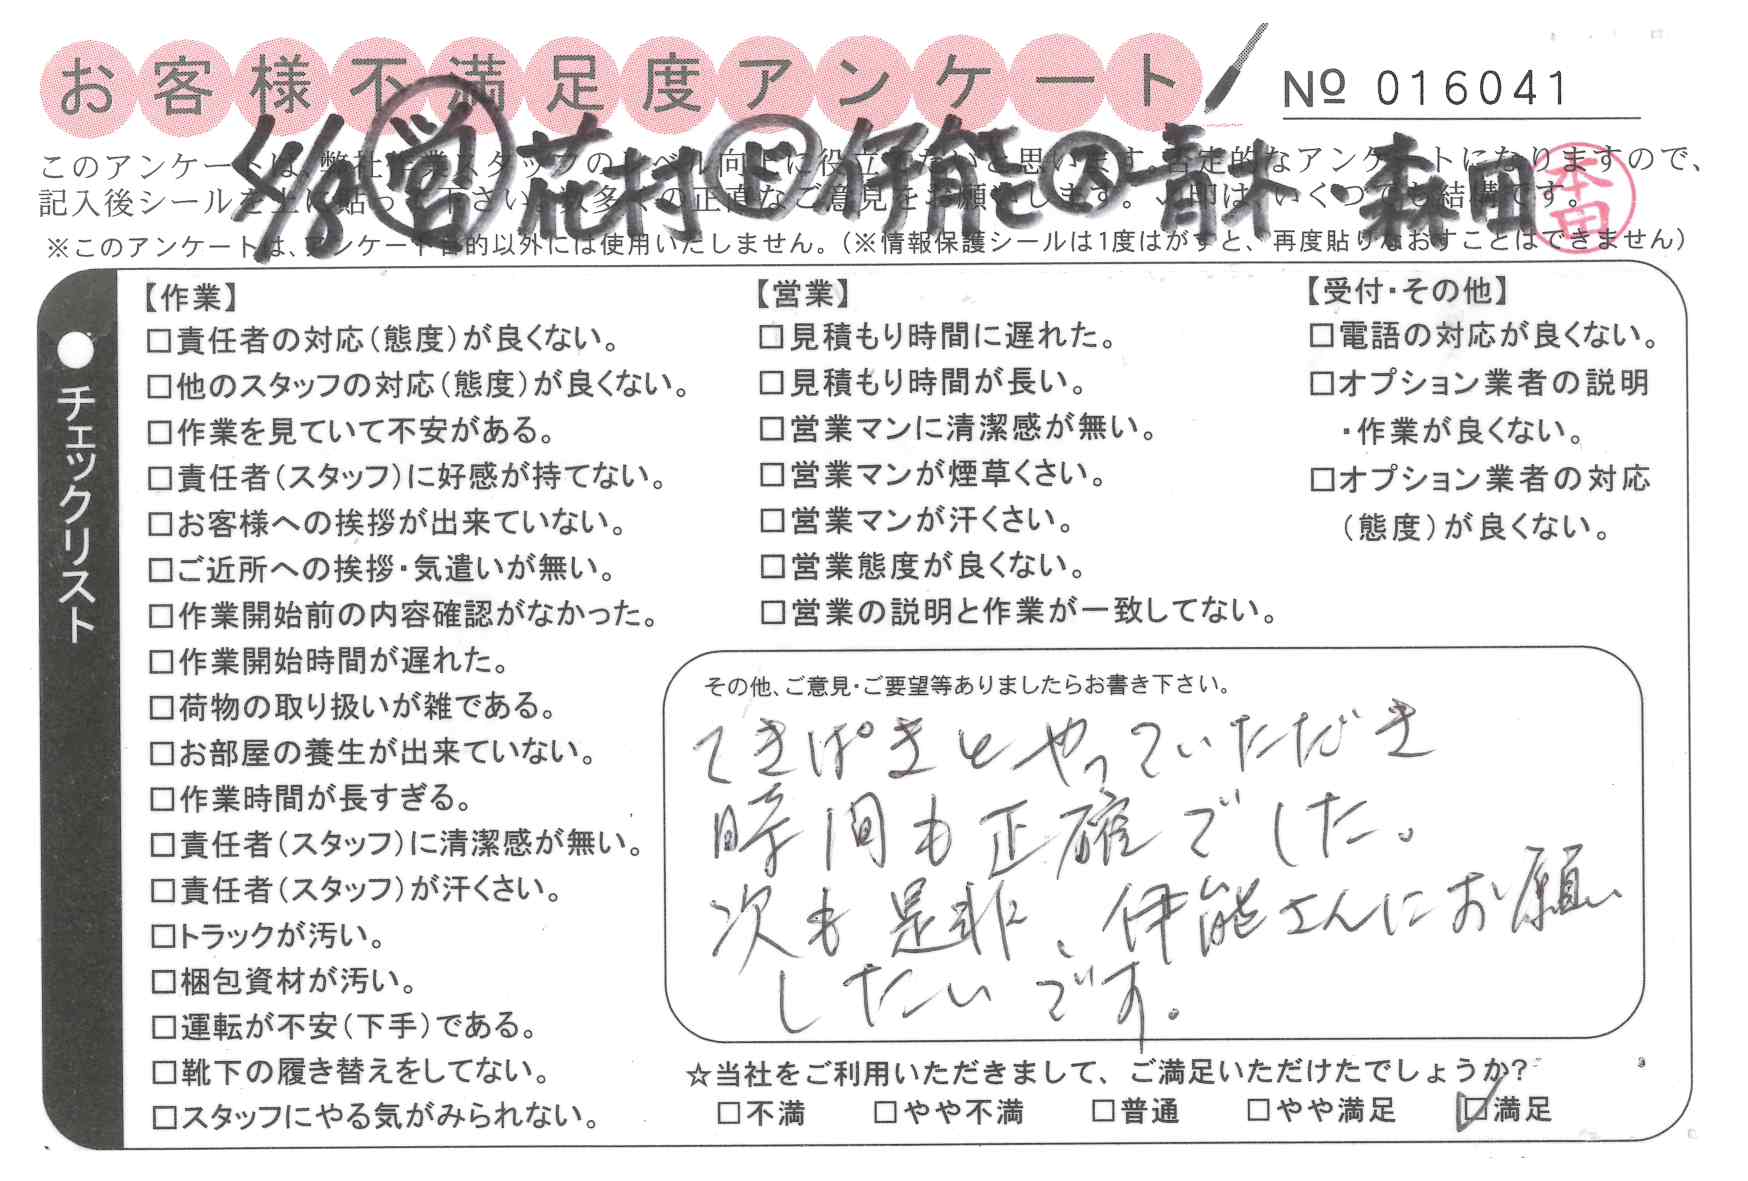 お客様不満足度アンケート
№ 016041
4/3 営 花村 ド 伊能 ス 青木・森田
本田
このアンケートは、弊社作業スタッフのレベル向上に役立てたいと思います。否定的なアンケートになりますので、
記入後シールを上に貼って下さい。数多くの正直なご意見をお願いします。✓印は、いくつでも結構です。
※このアンケートは、アンケート目的以外には使用いたしません。（※情報保護シールは1度はがすと、再度貼りなおすことはできません）
●チェックリスト
【作業】
□責任者の対応（態度）が良くない。
□他のスタッフの対応（態度）が良くない。
□作業を見ていて不安がある。
□責任者（スタッフ）に好感が持てない。
□お客様への挨拶が出来ていない。
□ご近所への挨拶・気遣いが無い。
□作業開始前の内容確認がなかった。
□作業開始時間が遅れた。
□荷物の取り扱いが雑である。
□お部屋の養生が出来ていない。
□作業時間が長すぎる。
□責任者（スタッフ）に清潔感が無い。
□責任者（スタッフ）が汗くさい。
□トラックが汚い。
□梱包資材が汚い。
□運転が不安（下手）である。
□靴下の履き替えをしてない。
□スタッフにやる気がみられない。
【営業】
□見積もり時間に遅れた。
□見積もり時間が長い。
□営業マンに清潔感が無い。
□営業マンが煙草くさい。
□営業マンが汗くさい。
□営業態度が良くない。
□営業の説明と作業が一致してない。
【受付・その他】
□電話の対応が良くない。
□オプション業者の説明
・作業が良くない。
□オプション業者の対応
（態度）が良くない。
その他、ご意見・ご要望等ありましたらお書き下さい。
てきぱきとやっていただき
時間も正確でした。
次も是非、伊能さんにお願い
したいです。
☆当社をご利用いただきまして、ご満足いただけたでしょうか？
□不満 □やや不満 □普通 □やや満足 ☑満足